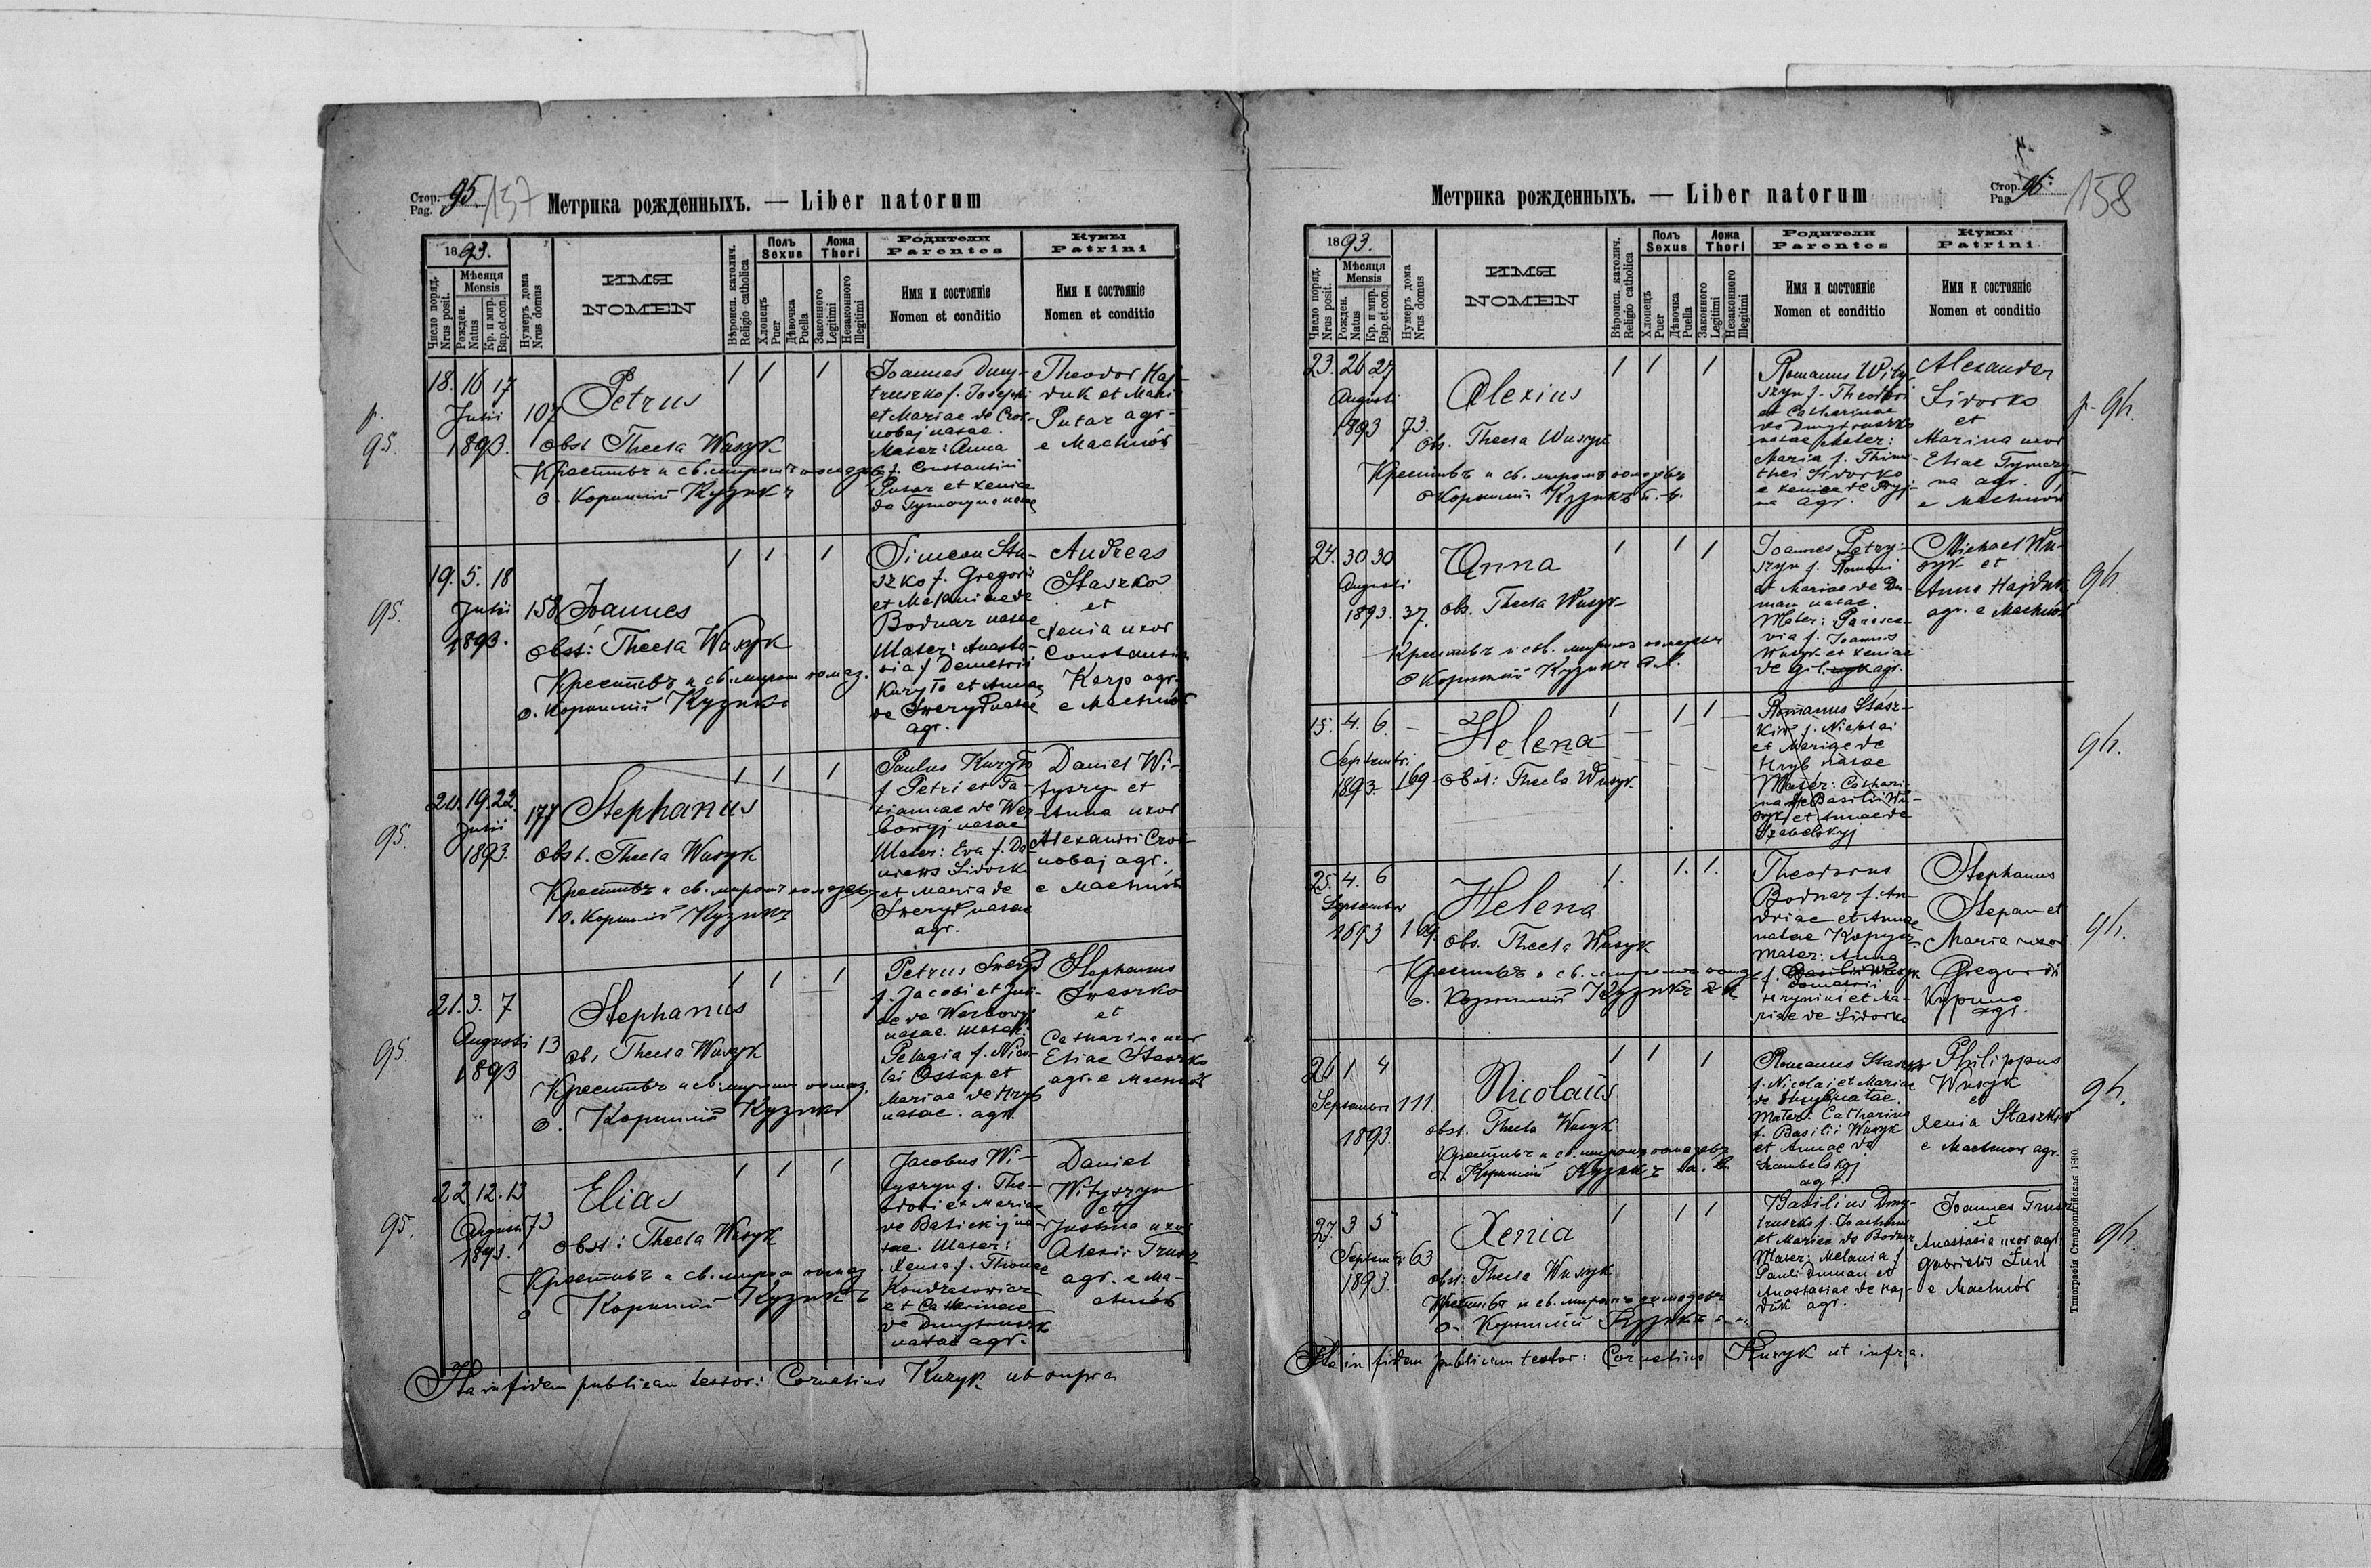 Стор. Pag. 95 157
Метрика рожденныхъ. — Liber natorum
1893.
Число поряд. Nrus posit.
Мѣсяця Mensis
Рожден. Natus
Кр. и мир. Bap. et. con.
Нумеръ дома Nrus domus
ИМЯ
NOMEN
Вѣроисп. католич. Religio catholica
Полъ Sexus
Хлопецъ Puer
Дѣвочка Puella
Ложа Thori
Законного Legitimi
Незаконного Illegitimi
Родители
Parentes
Имя и состояніе
Nomen et conditio
Кумы
Patrini
Имя и состояніе
Nomen et conditio
p. 95.
18. 16 17
Julii
1893.
107
Petrus
1 1 1
obst Thecla Wusyk
Крестивъ и св. миромъ помазавъ
о. Корнилій Кузыкъ
Joannes Dmy-
truszko f. Josephi
et Mariae de
natae.
Mater: Anna
f. Constantini
Putar et Xeniae
de Tymczyna natae
Theodor Haj-
duk et Maria
Putar agr.
e Machnów
95.
19. 5. 18
Julii
1893.
158
Joannes
1 1 1
obst: Thecla Wusyk
Крестивъ и св. миром помаз.
о. Корнилій Кузыкъ
Simeon Sta-
szko f. Gregorii
et Melaniae de
Bodnar natae
Mater: Anasta-
sia f Demetrii
Kuryło et Annae
de Sweryd natae
agr.
Andreas
Staszko
et
Xenia uxor
Constantini
Karp agr.
e Machnów
95.
20. 19. 22.
Julii
1893.
177
Stephanus
1 1 1
obst. Thecla Wusyk
Крестивъ и св. миромъ помазавъ
о. Корнилій Кузыкъ
Paulus Kuryło
f Petri et Ta-
tiannae de Wer-
bowyj natae
Mater: Eva f. Da-
Sidorko
et Maria de
Sweryd natae
agr.
Daniel Wi-
tyszyn et
Anna uxor
Alexandri Czor-
nobaj agr.
e Machnów
95.
21. 3. 7
Augusti
1893
13
Stephanus
1 1 1
ob. Thecla Wusyk
Крестивъ и св. миромъ помаз.
о. Корнилій Кузыкъ
Petrus Sweryd
f. Jacobi et Juli-
ae de Werbowyj
natae. Mater:
Pelagia f. Nico-
lai Ossap et
Mariae de Hryb
natae. agr.
Stephanus
Swaszko
et
Catharina uxor
Eliae Staszko
agr. e Machnów
95.
22 12. 13
Augusti
1893.
73
Elias
1 1 1
obst: Thecla Wusyk
Крестивъ и св. миром помаз
о Корнилій Кузыкъ
Jacobus Wi-
tyszyn f. The-
odori et Mariae
de na-
tae. Mater:
Xenia f. Thomae
Kondratowicz
et Catharinae
de Dmytruszko
natae agr.
Daniel
Wityszyn
et
Justina uxor
Alexii Trusz
agr. e Ma-
chnów
Ita in fidem publicam testor: Cornelius Kuzyk ut supra
Метрика рожденныхъ. — Liber natorum
Стор. Pag. 96. 158
1893.
Число поряд. Nrus posit.
Мѣсяця Mensis
Рожден. Natus
Кр. и мир. Bap. et. con.
Нумеръ дома Nrus domus
ИМЯ
NOMEN
Вѣроисп. католич. Religio catholica
Полъ Sexus
Хлопецъ Puer
Дѣвочка Puella
Ложа Thori
Законного Legitimi
Незаконного Illegitimi
Родители
Parentes
Имя и состояніе
Nomen et conditio
Кумы
Patrini
Имя и состояніе
Nomen et conditio
23. 26 27
Augusti
1893
73.
Alexius
1 1 1
ob. Thecla Wusyk
Крестивъ и св. миромъ помазавъ
о Корнилій Кузыкъ
Romanus Wity-
szyn f. Theodori
et Catharinae
de Dmytruszko
natae Mater:
Maria f. Thimo-
thei Sidorko
e Xeniae de
agr.
Alexander
Sidorko
et
Marina uxor
Eliae Tymczy-
na agr.
e Machnów
p. 96.
24. 30 30
Augusti
1893. 37.
Anna
1 1 1
obs. Thecla Wusyk
Крестивъ и св. миромъ помазавъ
о Корнилій Кузыкъ
Joannes Petry-
szyn f. Romani
et Mariae de Du-
man natae.
Mater: Parasce-
via f. Joannis
Wusyk et Xeniae
de Gil agr.
Michael Wu-
syk et
Anna Hajduk
agr. e Machnów
96.
15. 4. 6.
Septembr.
1893. 169
Helena
1 1 1
obst: Thecla Wusyk.
Romanus Stasz-
kiw f. Nicolai
et Mariae de
Hryb natae
Mater: Cathari-
na f. Basilii Wu-
syk et Annae de
96.
25. 4. 6
September
1893 169.
Helena
1. 1. 1.
obs. Thecla Wusyk
Крестивъ и св. миромъ помаз
о. Корнилій Кузыкъ
Theodorus
Bodnar f. An-
driae et Annae
natae
Mater: Anna
f. Basilii Wusyk
Demetrii
Hryniw et Ma-
riae de Sidorko
Stephanus
Stepan et
Maria uxor
Gregorii
agr.
96.
26 1 4
Septembri
1893.
111.
Nicolaus
1 1 1
obst. Thecla Wusyk
Крестивъ и св. миромъ помазавъ
о. Корнилій Кузыкъ
Romanus Staszkiw
f. Nicolai et Mariae
de Hryb natae.
Mater: Catharina
f. Basilii Wusyk
et Annae de
agr.
Philippus
Wusyk
et
Xenia Staszkiw
e Machnow agr.
96.
27. 3 5
Septembr.
1893.
63
Xenia
1 1 1
obst: Thecla Wusyk
Крестивъ и св. миромъ помазавъ
о. Корнилій Кузыкъ
Basilius Dmy-
truszko f. Joachimi
et Mariae de Bodnar
Mater: Melania f.
Pauli Duman et
Anastasiae de Haj-
duk agr.
Joannes Trusz
et
Anastasia uxor agr.
Gabrielis
e Machnów
96.
Типографія Ставропигійская 1890.
Ita in fidem publicam testor: Cornelius Kuzyk ut infra.